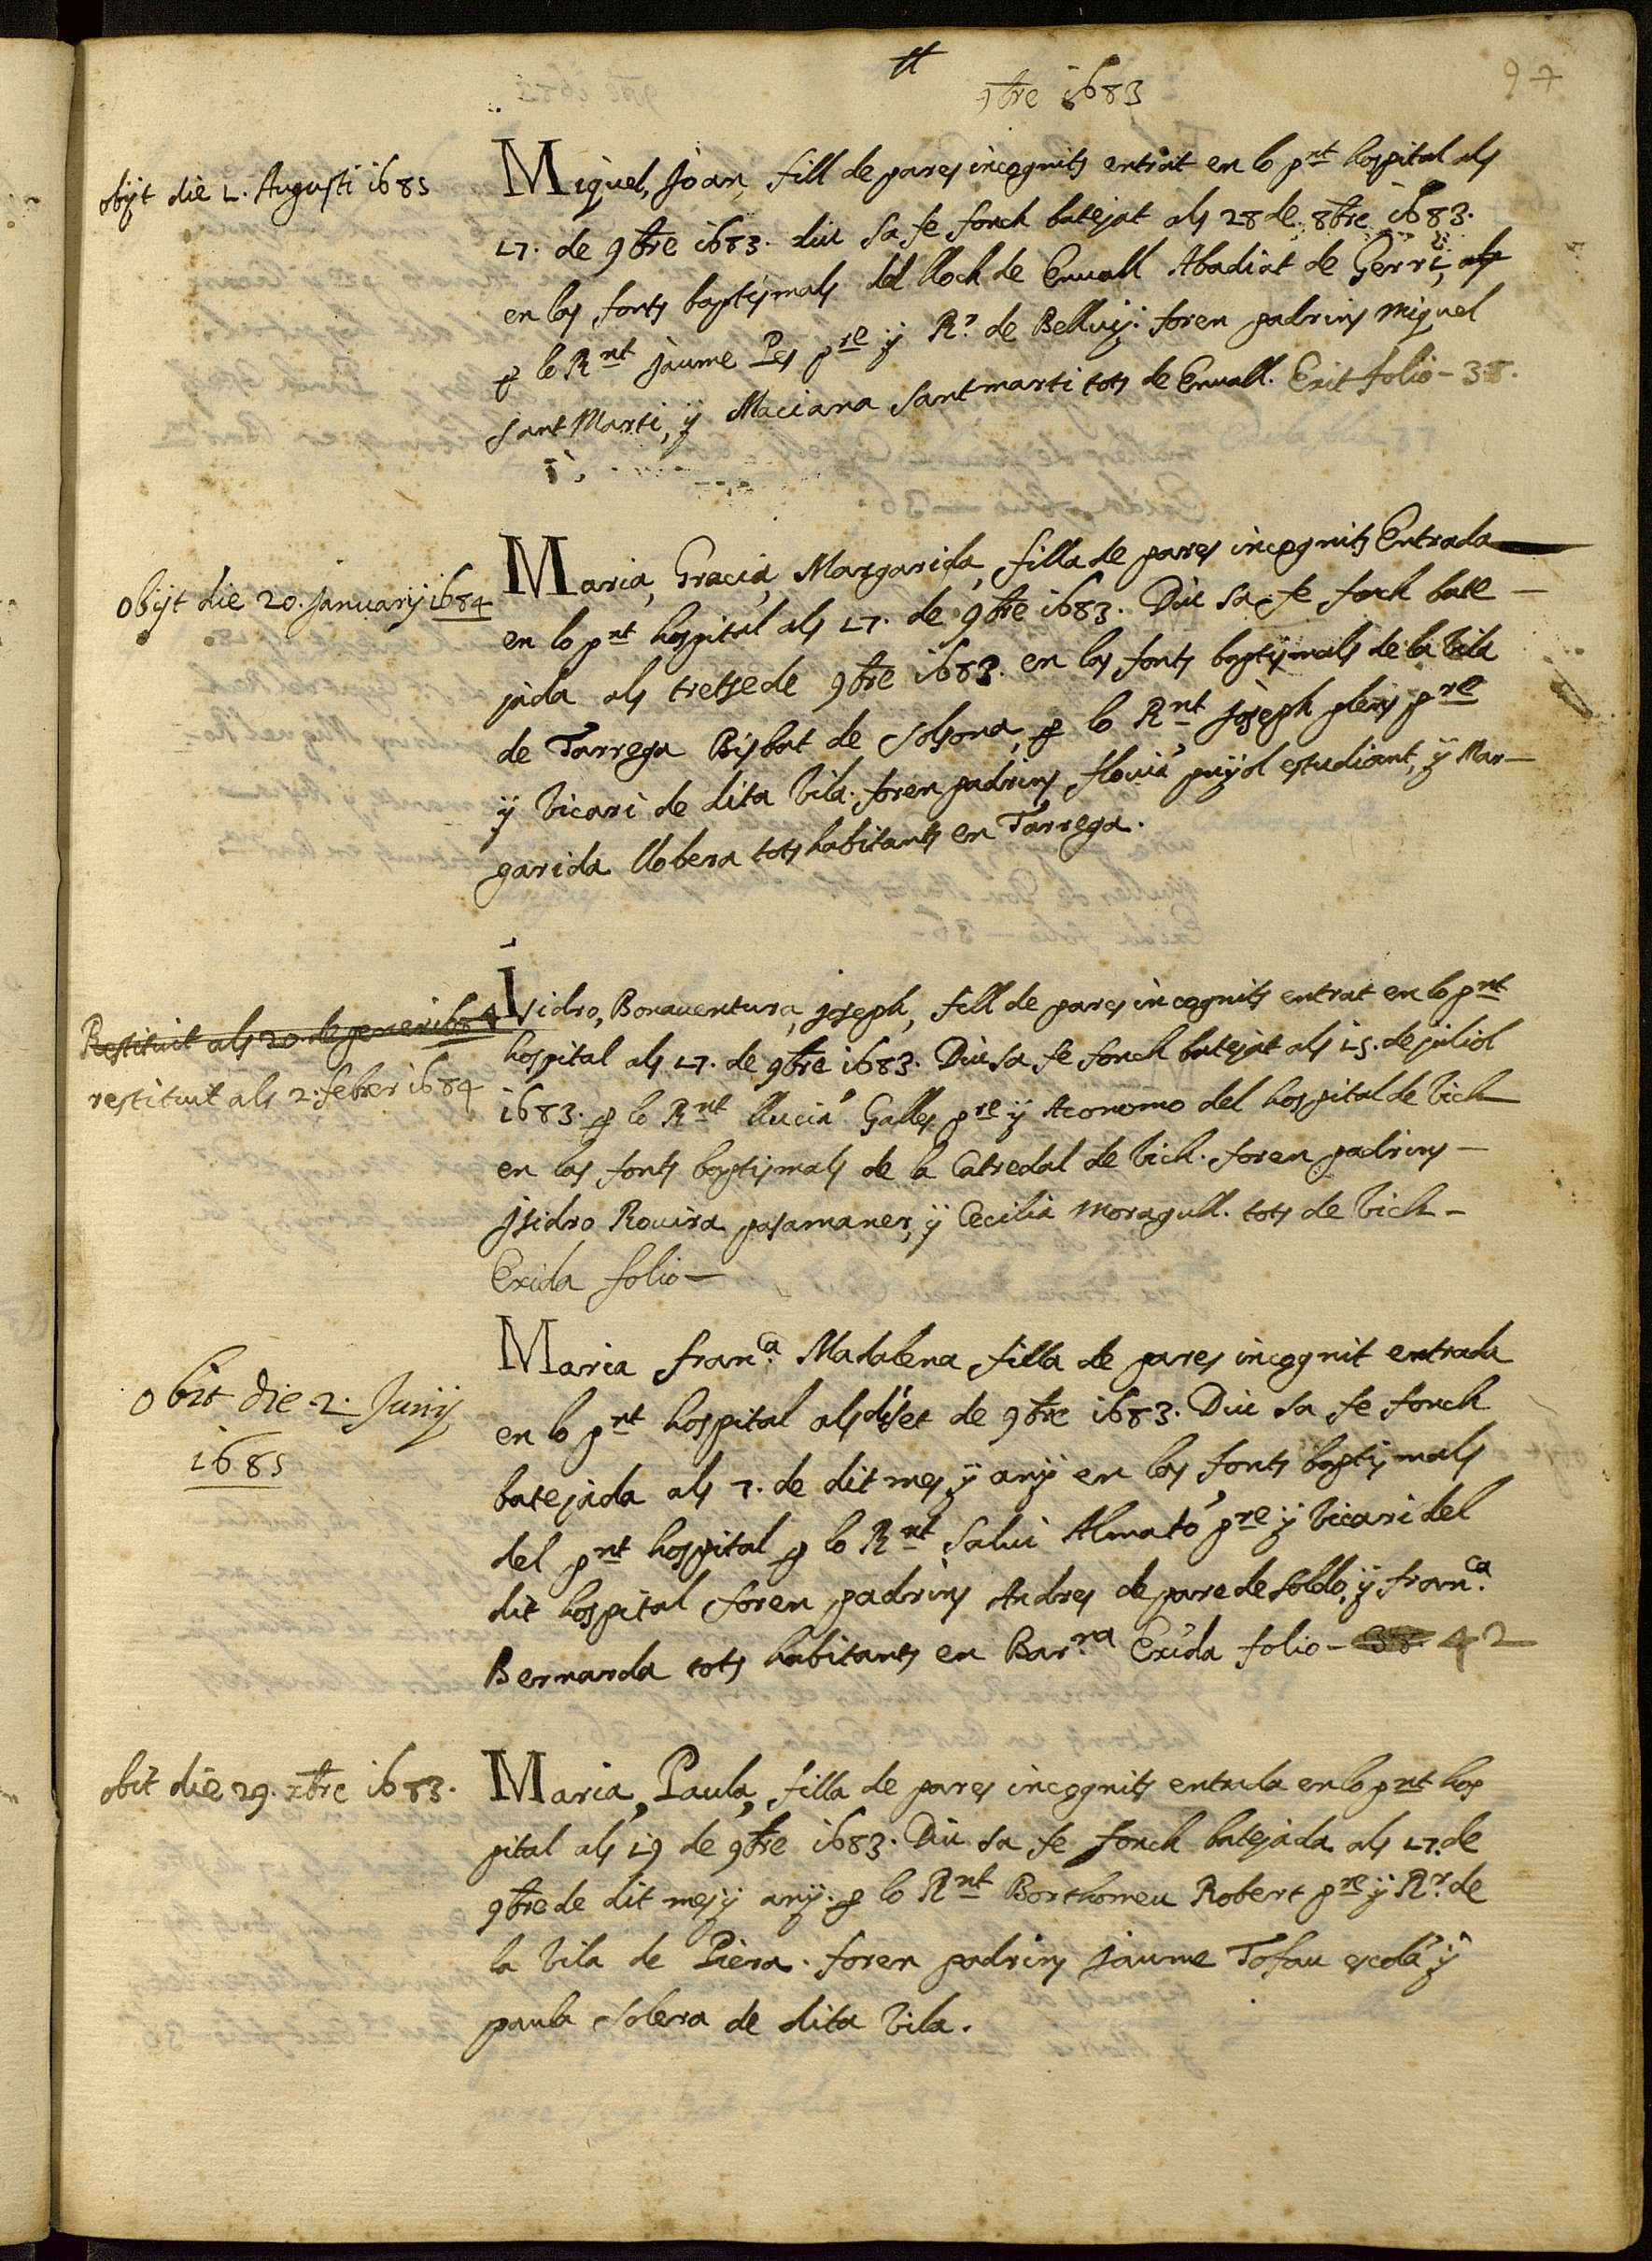 9bre 1683
97
obijt die 1. Augusti 1685
Miquel, Joan, fill de pares incognits entrat en lo pnt hospital als
17. de 9bre 1683. diu sa fe fonch batejat als 28 de 8bre 1683.
en las fonts baptismals del lloch de Envall Abadiat de Gerri, als
p lo Rnt Jaume Pes pre y Rr. de Belluy: foren padrins Miquel
sant Marti, y Maciana sant marti tots de Envall. Exit folio - 38.
obijt die 20. Januarij 1684
Maria, Gracia, Margarida, filla de pares incognits Entrada
en lo pnt hospital als 17. de 9bre 1683. Diu sa fe fonch bate
jada als tretse de 9bre 1683. en las fonts baptismals de la Vila
de Tarrega Bisbat de Solsona, p lo Rnt Joseph plens pre
y Vicari de dita Vila. foren padrins, flouià puyol estudiant, y Mar-
garida llobera tots habitants en Tarrega.
Restituit als 20. de gener 1684
restituit als 2. feber 1684
Isidro, Bonaventura, Joseph, fill de pares incognits entrat en lo pnt
hospital als 17. de 9bre 1683. Diu sa fe fonch batejat als 15. de juliol
1683. p lo Rnt llucià Galles pre y Aconomo del hospital de Vich
en las fonts baptismals de la Catredal de Vich. foren padrins -
Isidro Rouira pasamaner, y Cecilia Moragull. tots de Vich -
Exida folio -
obit die 2. Junij
1685
Maria franca. Madalena filla de pares incognit entrada
en lo pnt hospital als diset de 9bre 1683. Diu sa fe fonch
batejada als 7. de dit mes y any en las fonts baptismals
del pnt hospital p lo Rnt Salui Almatò pre y Vicari del
dit hospital foren padrins Andres de pare de soldo, y franca.
Bernarda tots habitants en Barna. Exida folio - 38. 42
obit die 29. xbre 1683.
Maria, Paula, filla de pares incognits entrada en lo pnt hos
pital als 19 de 9bre 1683. Diu sa fe fonch batejada als 17. de
9bre de dit mes y any. p lo Rnt Borthomeu Robert pre y Rr. de
la Vila de Piera. foren padrins Jaume Tofau escolà y
paula Solera de dita Vila.